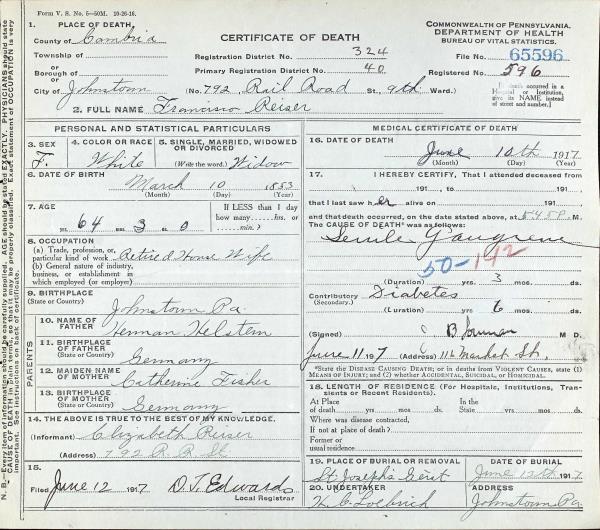 Form V. S. No. 5—50M. 10-26-16.
1. PLACE OF DEATH.
County of Cambria
Township of
or
Borough of
or
City of Johnstown
CERTIFICATE OF DEATH
Registration District No. 324
Primary Registration District No. 40
(No. 792, Rail Road St., 9th Ward.)
COMMONWEALTH OF PENNSYLVANIA.
DEPARTMENT OF HEALTH
BUREAU OF VITAL STATISTICS.
File No. 65596
Registered No. 596
[If death occurred in a Hospital or Institution, give its NAME instead of street and number.]
2. FULL NAME Francisco Reiser
PERSONAL AND STATISTICAL PARTICULARS
3. SEX
F.
4. COLOR OR RACE
White
5. SINGLE, MARRIED, WIDOWED OR DIVORCED
(Write the word.) Widow
6. DATE OF BIRTH
March 10 1853
(Month) (Day) (Year)
7. AGE
64 yrs. 3 mos. 0
If LESS than 1 day how many.....hrs. or .....min.?
8. OCCUPATION
(a) Trade, profession, or particular kind of work Retired House Wife
(b) General nature of industry, business, or establishment in which employed (or employer)
9. BIRTHPLACE
(State or Country) Johnstown Pa
PARENTS
10. NAME OF FATHER Herman Helstein
11. BIRTHPLACE OF FATHER
(State or Country) Germany
12. MAIDEN NAME OF MOTHER Catherine Fisher
13. BIRTHPLACE OF MOTHER
(State or Country) Germany
14. THE ABOVE IS TRUE TO THE BEST OF MY KNOWLEDGE.
(Informant) Elizabeth Reiser
(Address) 792 R.R. St
15.
Filed June 12 1917 D.T. Edwards
Local Registrar
MEDICAL CERTIFICATE OF DEATH
16. DATE OF DEATH
June 10th 1917
(Month) (Day) (Year)
17. I HEREBY CERTIFY, That I attended deceased from
191...., to 191....,
that I last saw her alive on 191....,
and that death occurred, on the date stated above, at 5.45P M.
The CAUSE OF DEATH* was as follows:
Senile Gangrene
50-142
(Duration) yrs. 3 mos. ds.
Contributory Diabetes
(Secondary.)
(Duration) yrs. 6 mos. ds.
(Signed) M D.
June 11 1917 (Address) 112 Market St.
*State the DISEASE CAUSING DEATH; or in deaths from VIOLENT CAUSES, state (1) MEANS OF INJURY; and (2) whether ACCIDENTAL, SUICIDAL, or HOMICIDAL.
18. LENGTH OF RESIDENCE (For Hospitals, Institutions, Transients or Recent Residents).
At Place of death yrs. mos. ds.
In the State yrs. mos. ds.
Where was disease contracted, if not at place of death?
Former or usual residence
19. PLACE OF BURIAL OR REMOVAL
St Joseph's
DATE OF BURIAL
June 12th 1917
20. UNDERTAKER
ADDRESS
Johnstown Pa